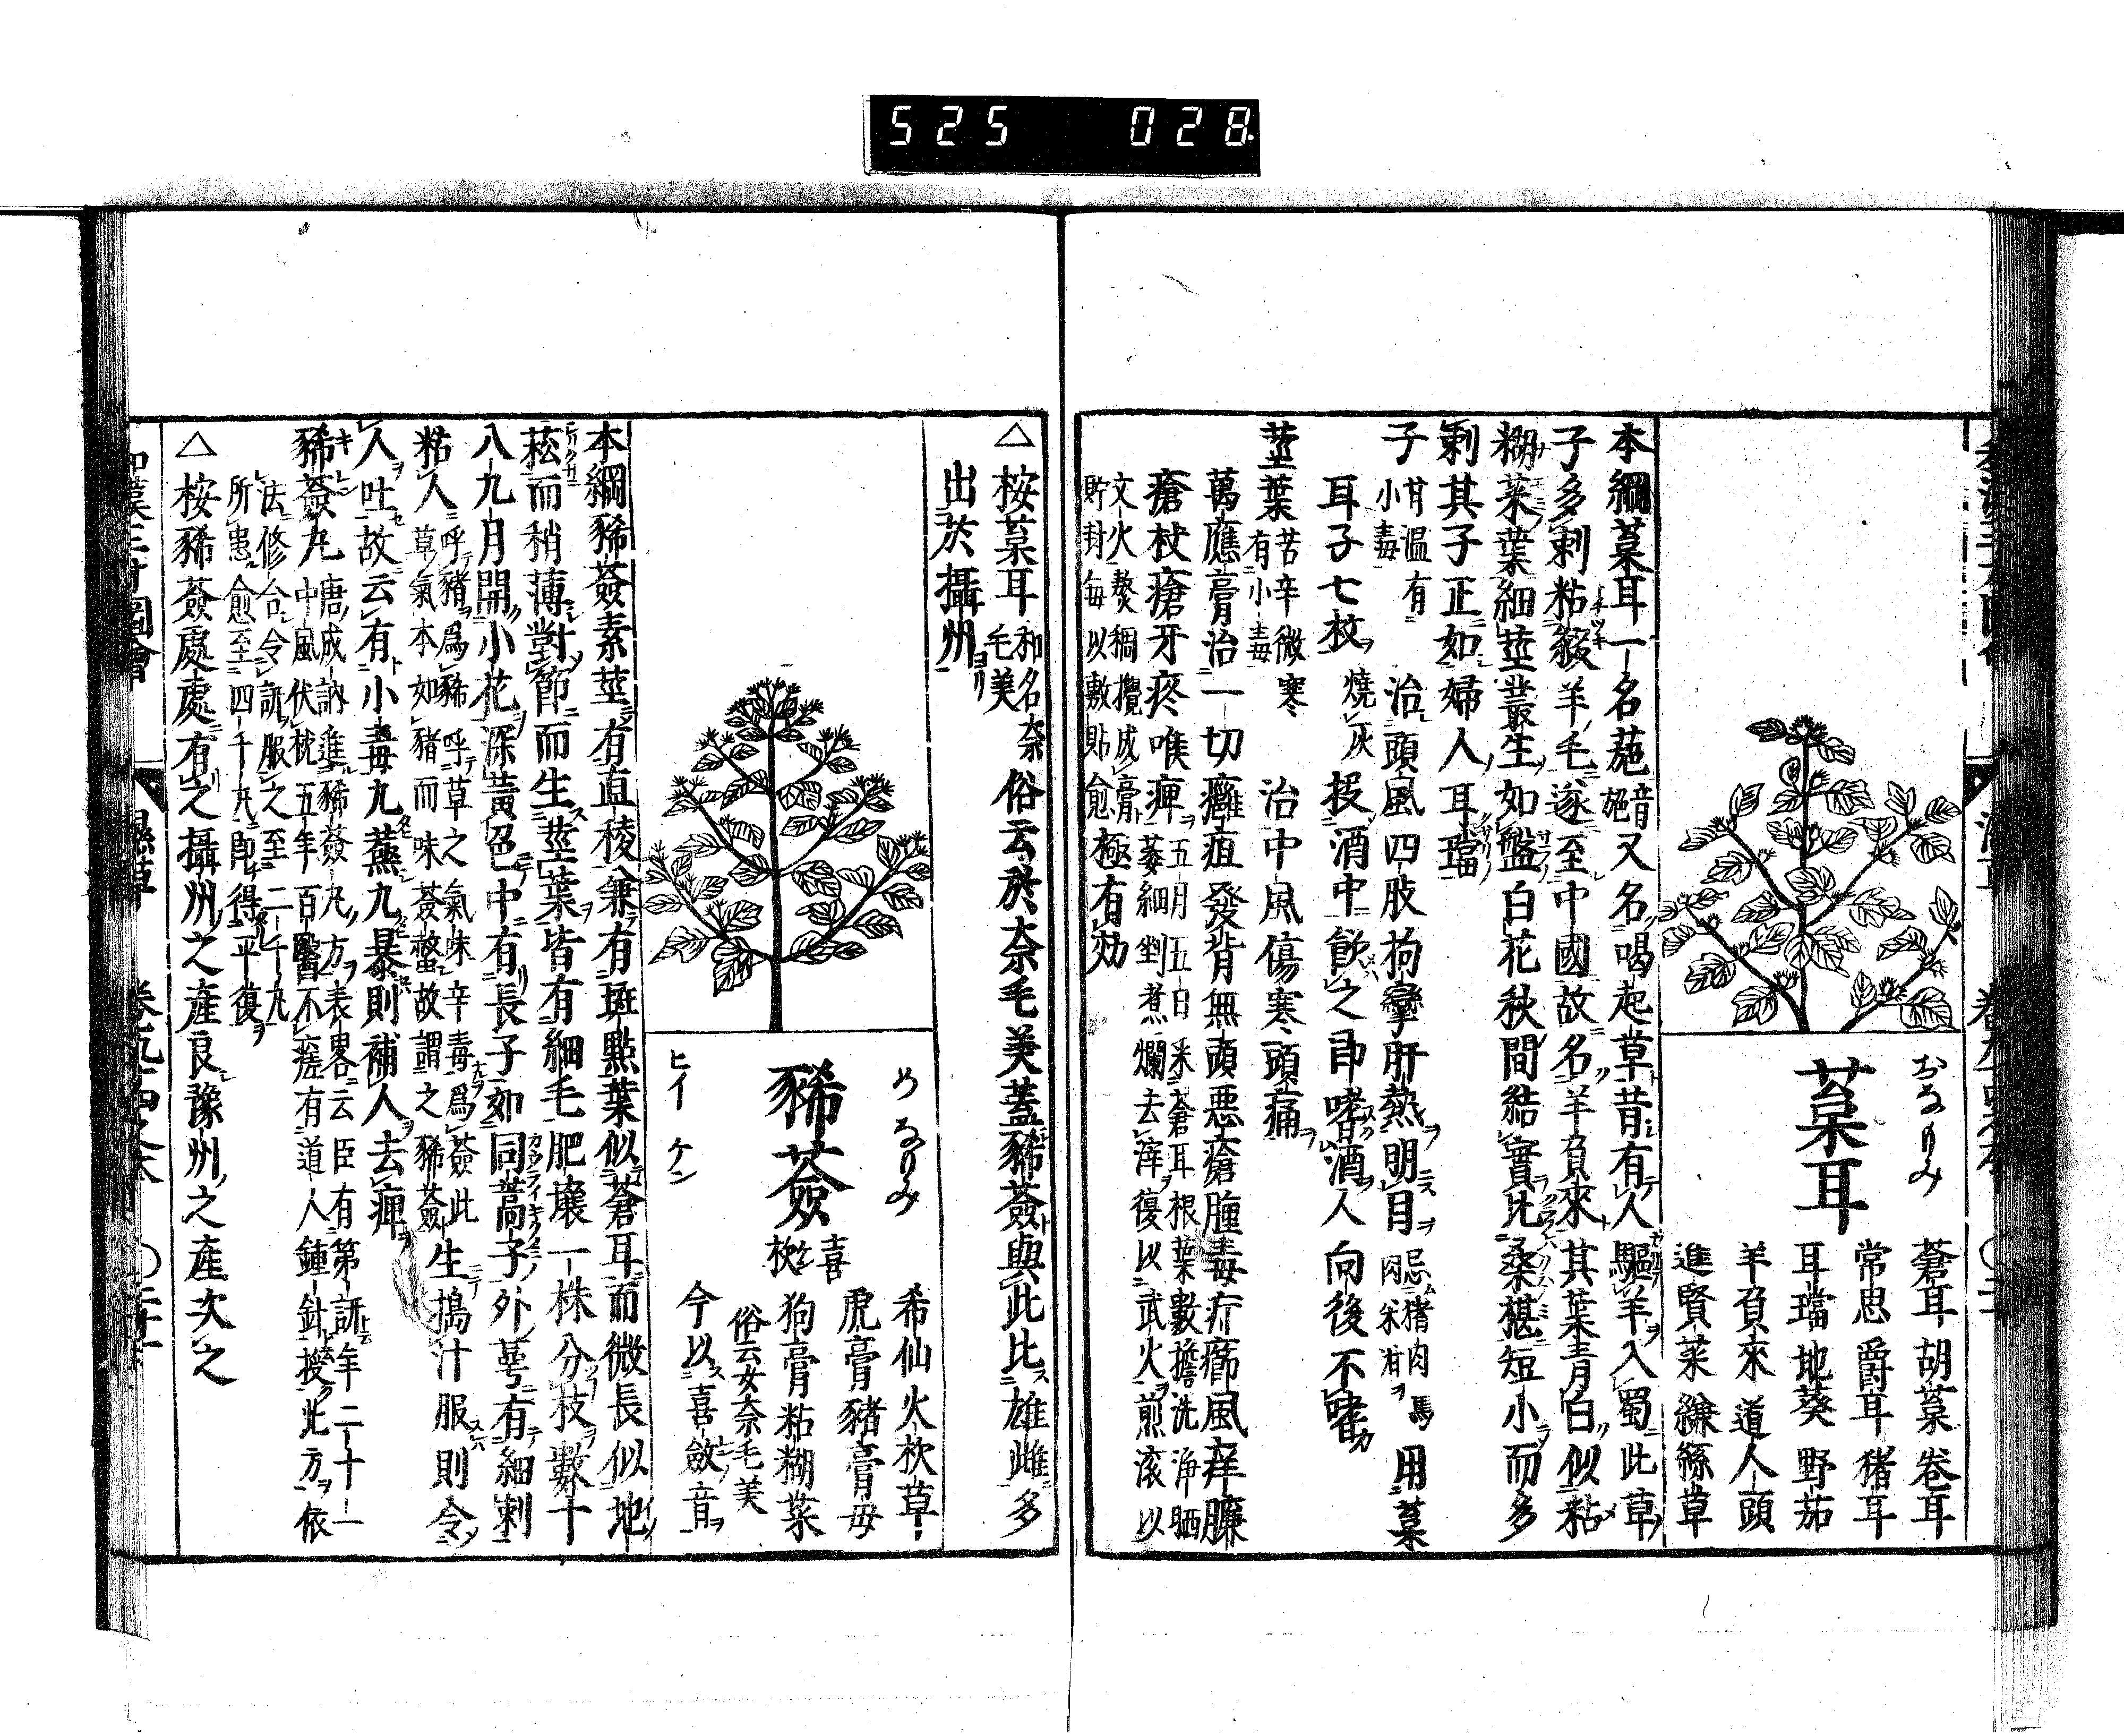 525 028
おなもみ
葈耳
蒼耳 胡葈 卷耳
常思 爵耳 猪耳
耳璫 地葵 野茄
羊負來 道人頭
進賢菜 縑絲草
本綱葈耳一名葹音施又名喝起草昔有人驅羊入蜀此草
子多刺粘綴羊毛遂至中國故名羊負來其葉青白似粘
糊菜葉細莖叢生如盤白花秋間結實比桑椹短小而多
刺其子正如婦人耳璫
子甘溫有小毒 治頭風四肢拘攣肝熱明目忌猪肉馬肉米泔 用葈
耳子七枚燒灰投酒中飲之即嗜酒人向後不嗜
莖葉苦辛微寒有小毒 治中風傷寒頭痛
萬應膏治一切癰疽發背無頭惡瘡腫毒疔癤風痒臁
瘡杖瘡牙疼喉痺五月五日采蒼耳根葉數擔洗淨晒萎細剉煮爛去滓復以武火煎滾以
文火熬稠攪成膏貯封每以敷貼愈極有効
△桉葈耳和名奈毛美俗云於奈毛美蓋豨薟與此比雄雌多
出於攝州
めなもみ
豨薟
喜杴
ヒイ ケン
希仙 火杴草
虎膏 豬膏母
狗膏 粘糊菜
俗云女奈毛美
今以喜斂音
本綱豨薟素莖有直稜兼有斑點葉似蒼耳而微長似地
菘而稍薄對節而生莖葉皆有細毛肥壤一株分枝數十
八九月開小花深黃色中有長子如同蒿子外萼有細刺
粘人呼豬爲豨呼草之氣味辛毒爲薟此草氣本如豬而味薟螫故謂之豨薟生搗汁服則令
人吐故云有小毒九蒸九暴則補人去痺
豨薟丸唐成訥進豨薟丸方表畧云臣有第訮年二十一中風伏枕五年百醫不瘥有道人鍾針授此方依
法修合令訮服之至二千丸所患愈至四千丸即得平復
△桉豨薟處處有之攝州之產良豫州之產次之